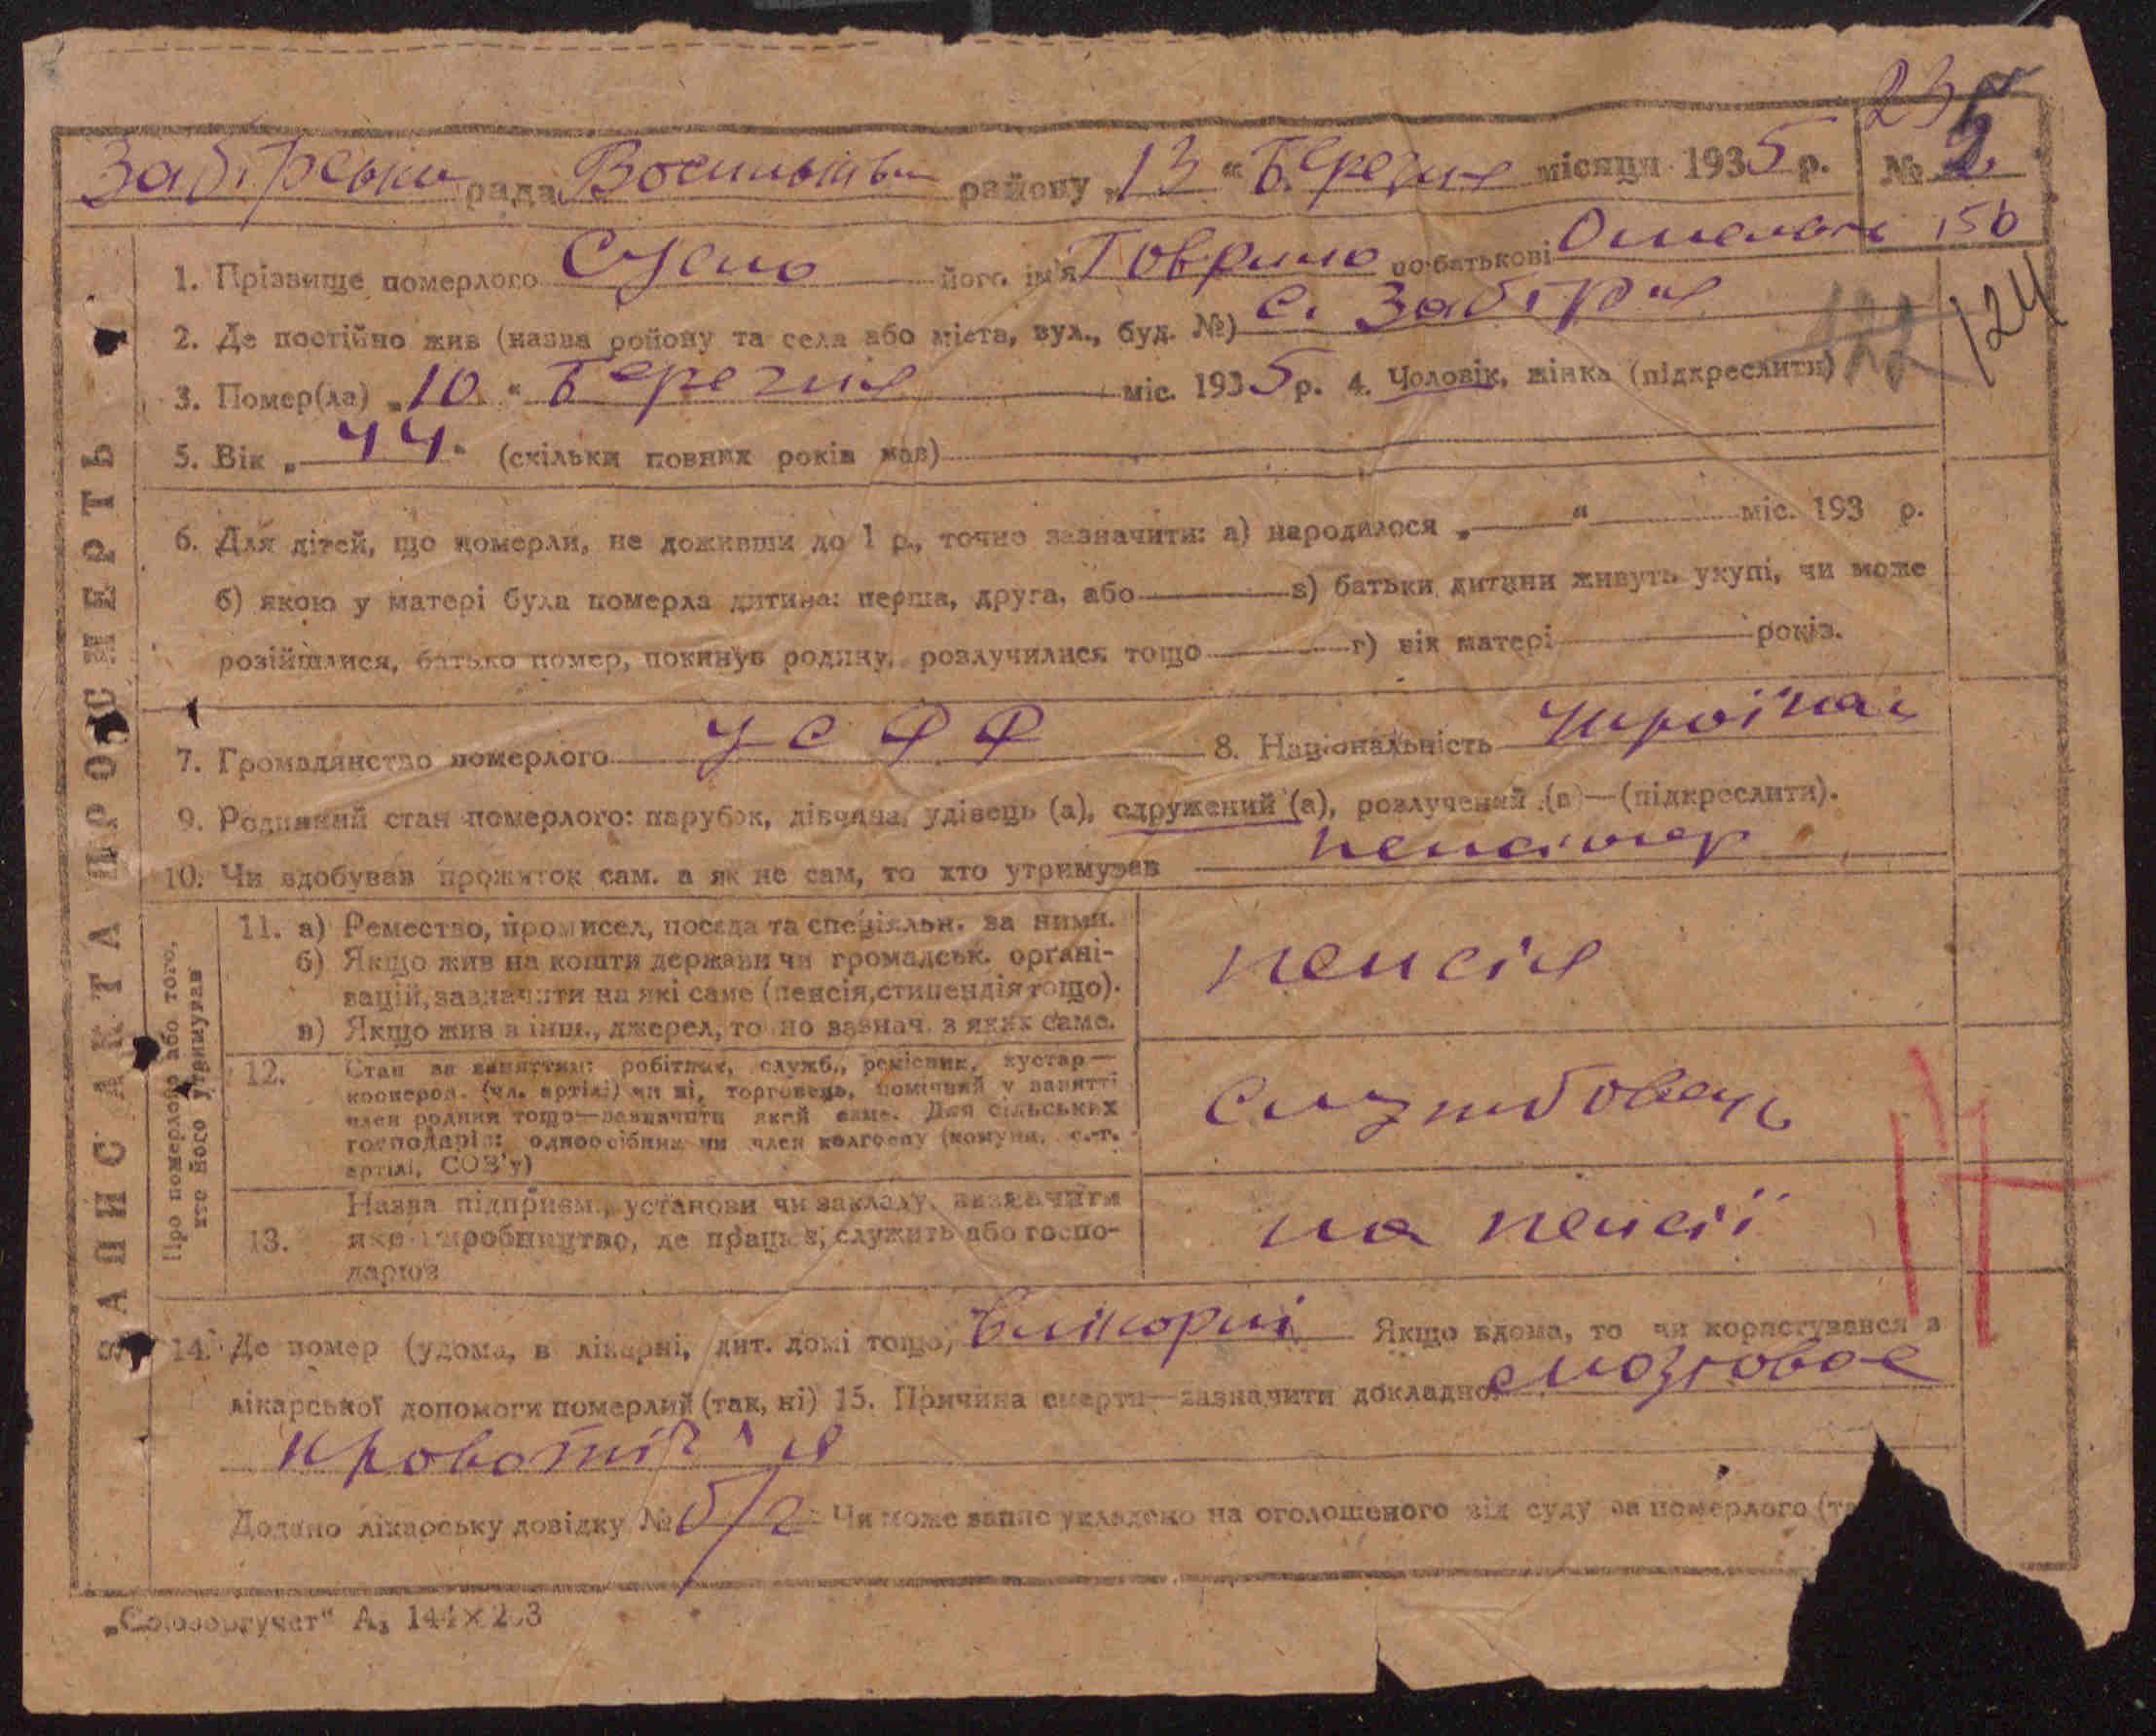 23
Забірська рада Васильків районy „13“ Березня місяця 1935 р. № 2
1. Прізвище померлого його ім'я Говрило по батькові 156
2. Де постійно жив (назва району та села або міста, вул., буд. №) с. Забір'я 124
3. Помер(ла) „10“ Березня міс. 1935 р. 4. Чоловік, жінка (підкреслити)
5. Вік „44“ (скільки повних років мав)
6. Для дітей, що померли, не доживши до 1 р., точно зазначити: а) народилося „ “ міс. 193 р.
б) якою у матері була померла дитина: перша, друга, або в) батьки дитини живуть укупі, чи може
розійшлися, батько помер, покинув родину, розлучилися тощо г) вік матері років.
7. Громадянство померлого УСРР 8. Національність Україна
9. Родинний стан померлого: парубок, дівчина, удівець (а), одружений (а), розлучений (а)—(підкреслити).
10. Чи здобував прожиток сам, а як не сам, то хто утримував пенсіонер
11. а) Ремество, промисел, посада та спеціяльн. за ними.
б) Якщо жив на кошти держави чи громадськ. органі-
зацій, зазначити на які саме (пенсія, стипендія тощо).
в) Якщо жив з інш., джерел, точно зазнач. з яких саме.
пенсія
12. Стан за заняттям: робітник, служб., ремісник, кустар—
кооперов. (чл. артілі) чи ні, торговець, помічний у занятті
член родини тощо—зазначити який саме. Для сільських
господарів: одноосібник чи член колгоспу (комуни, с.-г.
артілі, СОЗ'у)
службовець
13. Назва підприєм., установи чи закладу, зазначити
яке виробництво, де працює, служить або госпо-
дарює
на пенсії
Про померлого або того,
хто його утримував
ЗАПИС АКТА ПРО СМЕРТЬ
14. Де помер (удома, в лікарні, дит. домі тощо) Якщо вдома, то чи користувався з
лікарської допомоги померлий (так, ні) 15. Причина смерти—зазначити докладно мозговое
Додано лікарську довідку № Чи може запис укладено на оголошеного від суду за померлого (та
„Союзоргучет“ А₅ 144×203